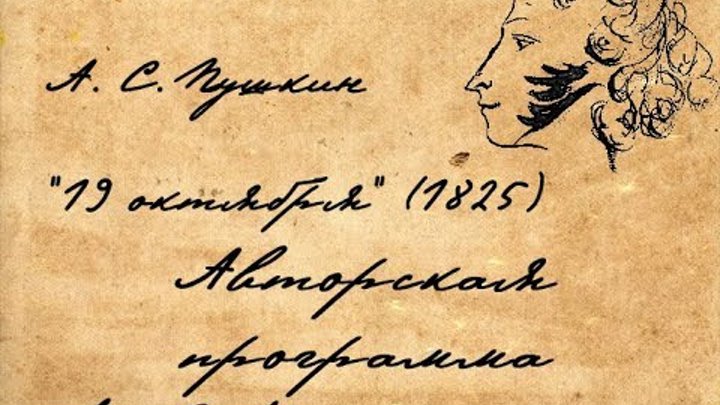 А. С. Пушкин
"19 октября" (1825)
Авторская
программа